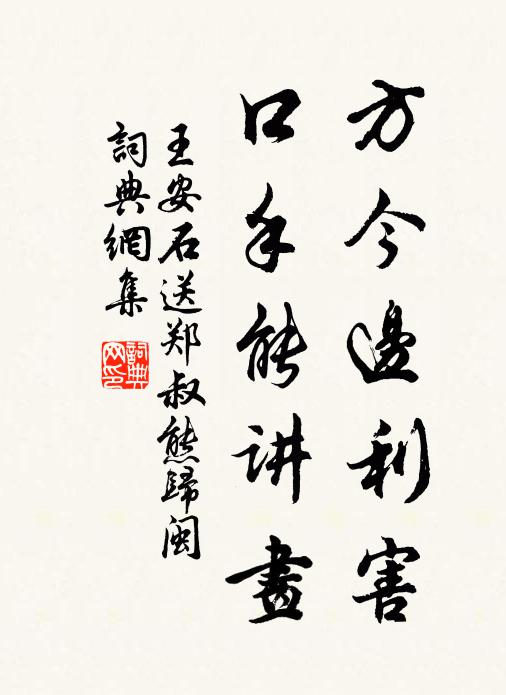 方今邊利害
口手能讲畫
王安石送郑叔熊歸闽
詞典網集
詞典网印